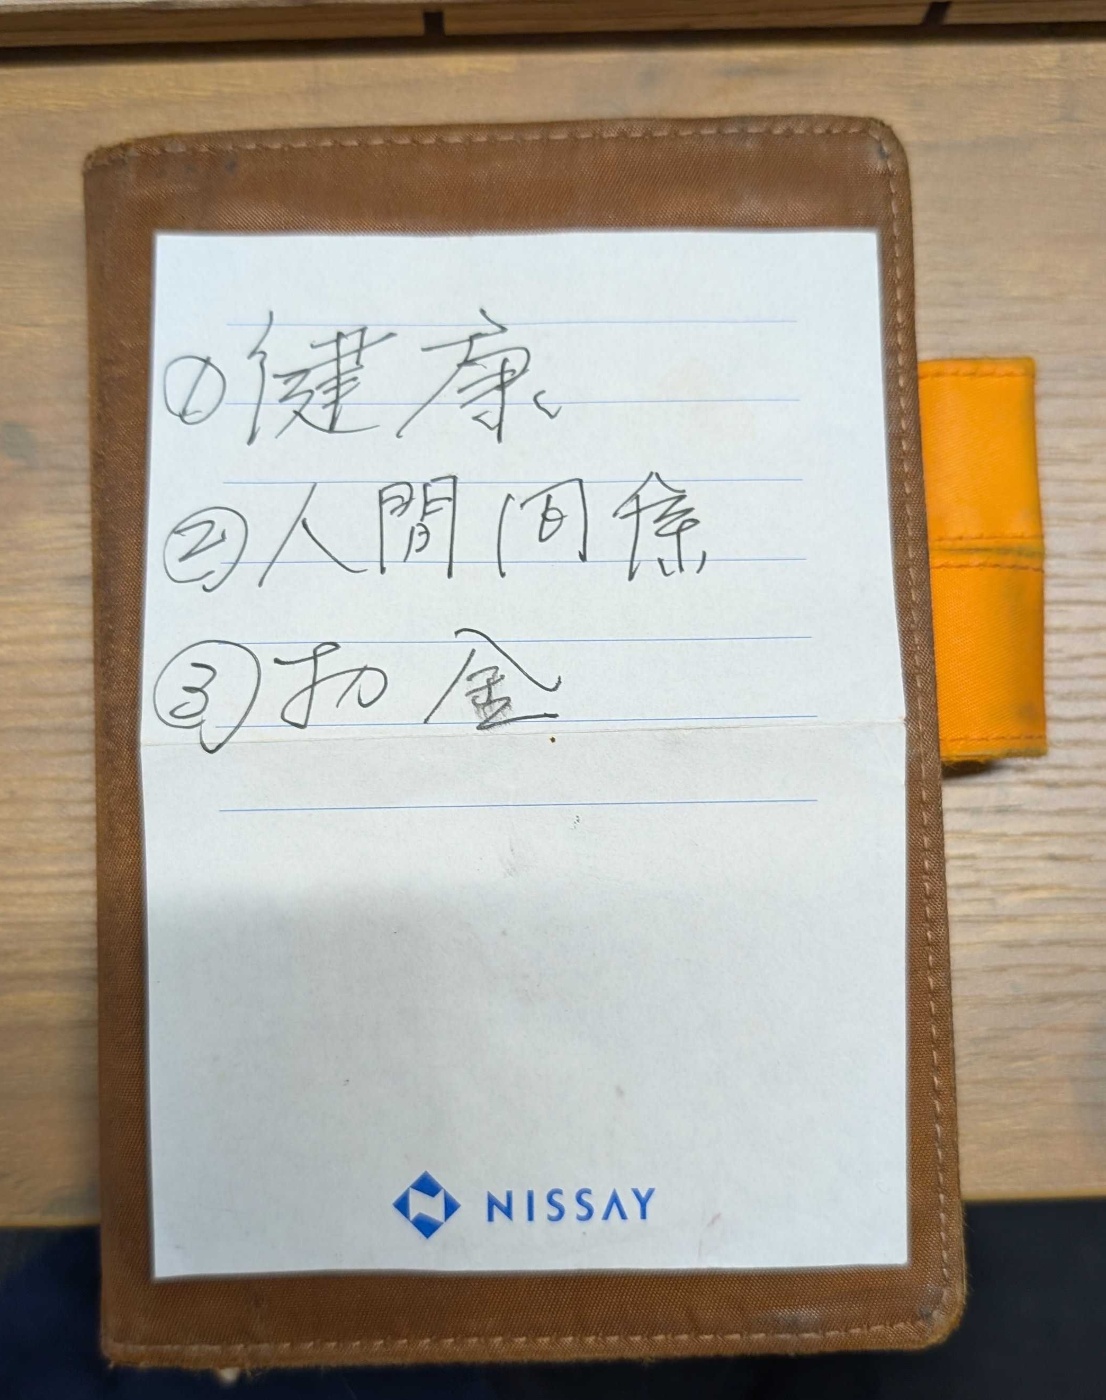 ①健康、
②人間関係
③お金
NISSAY